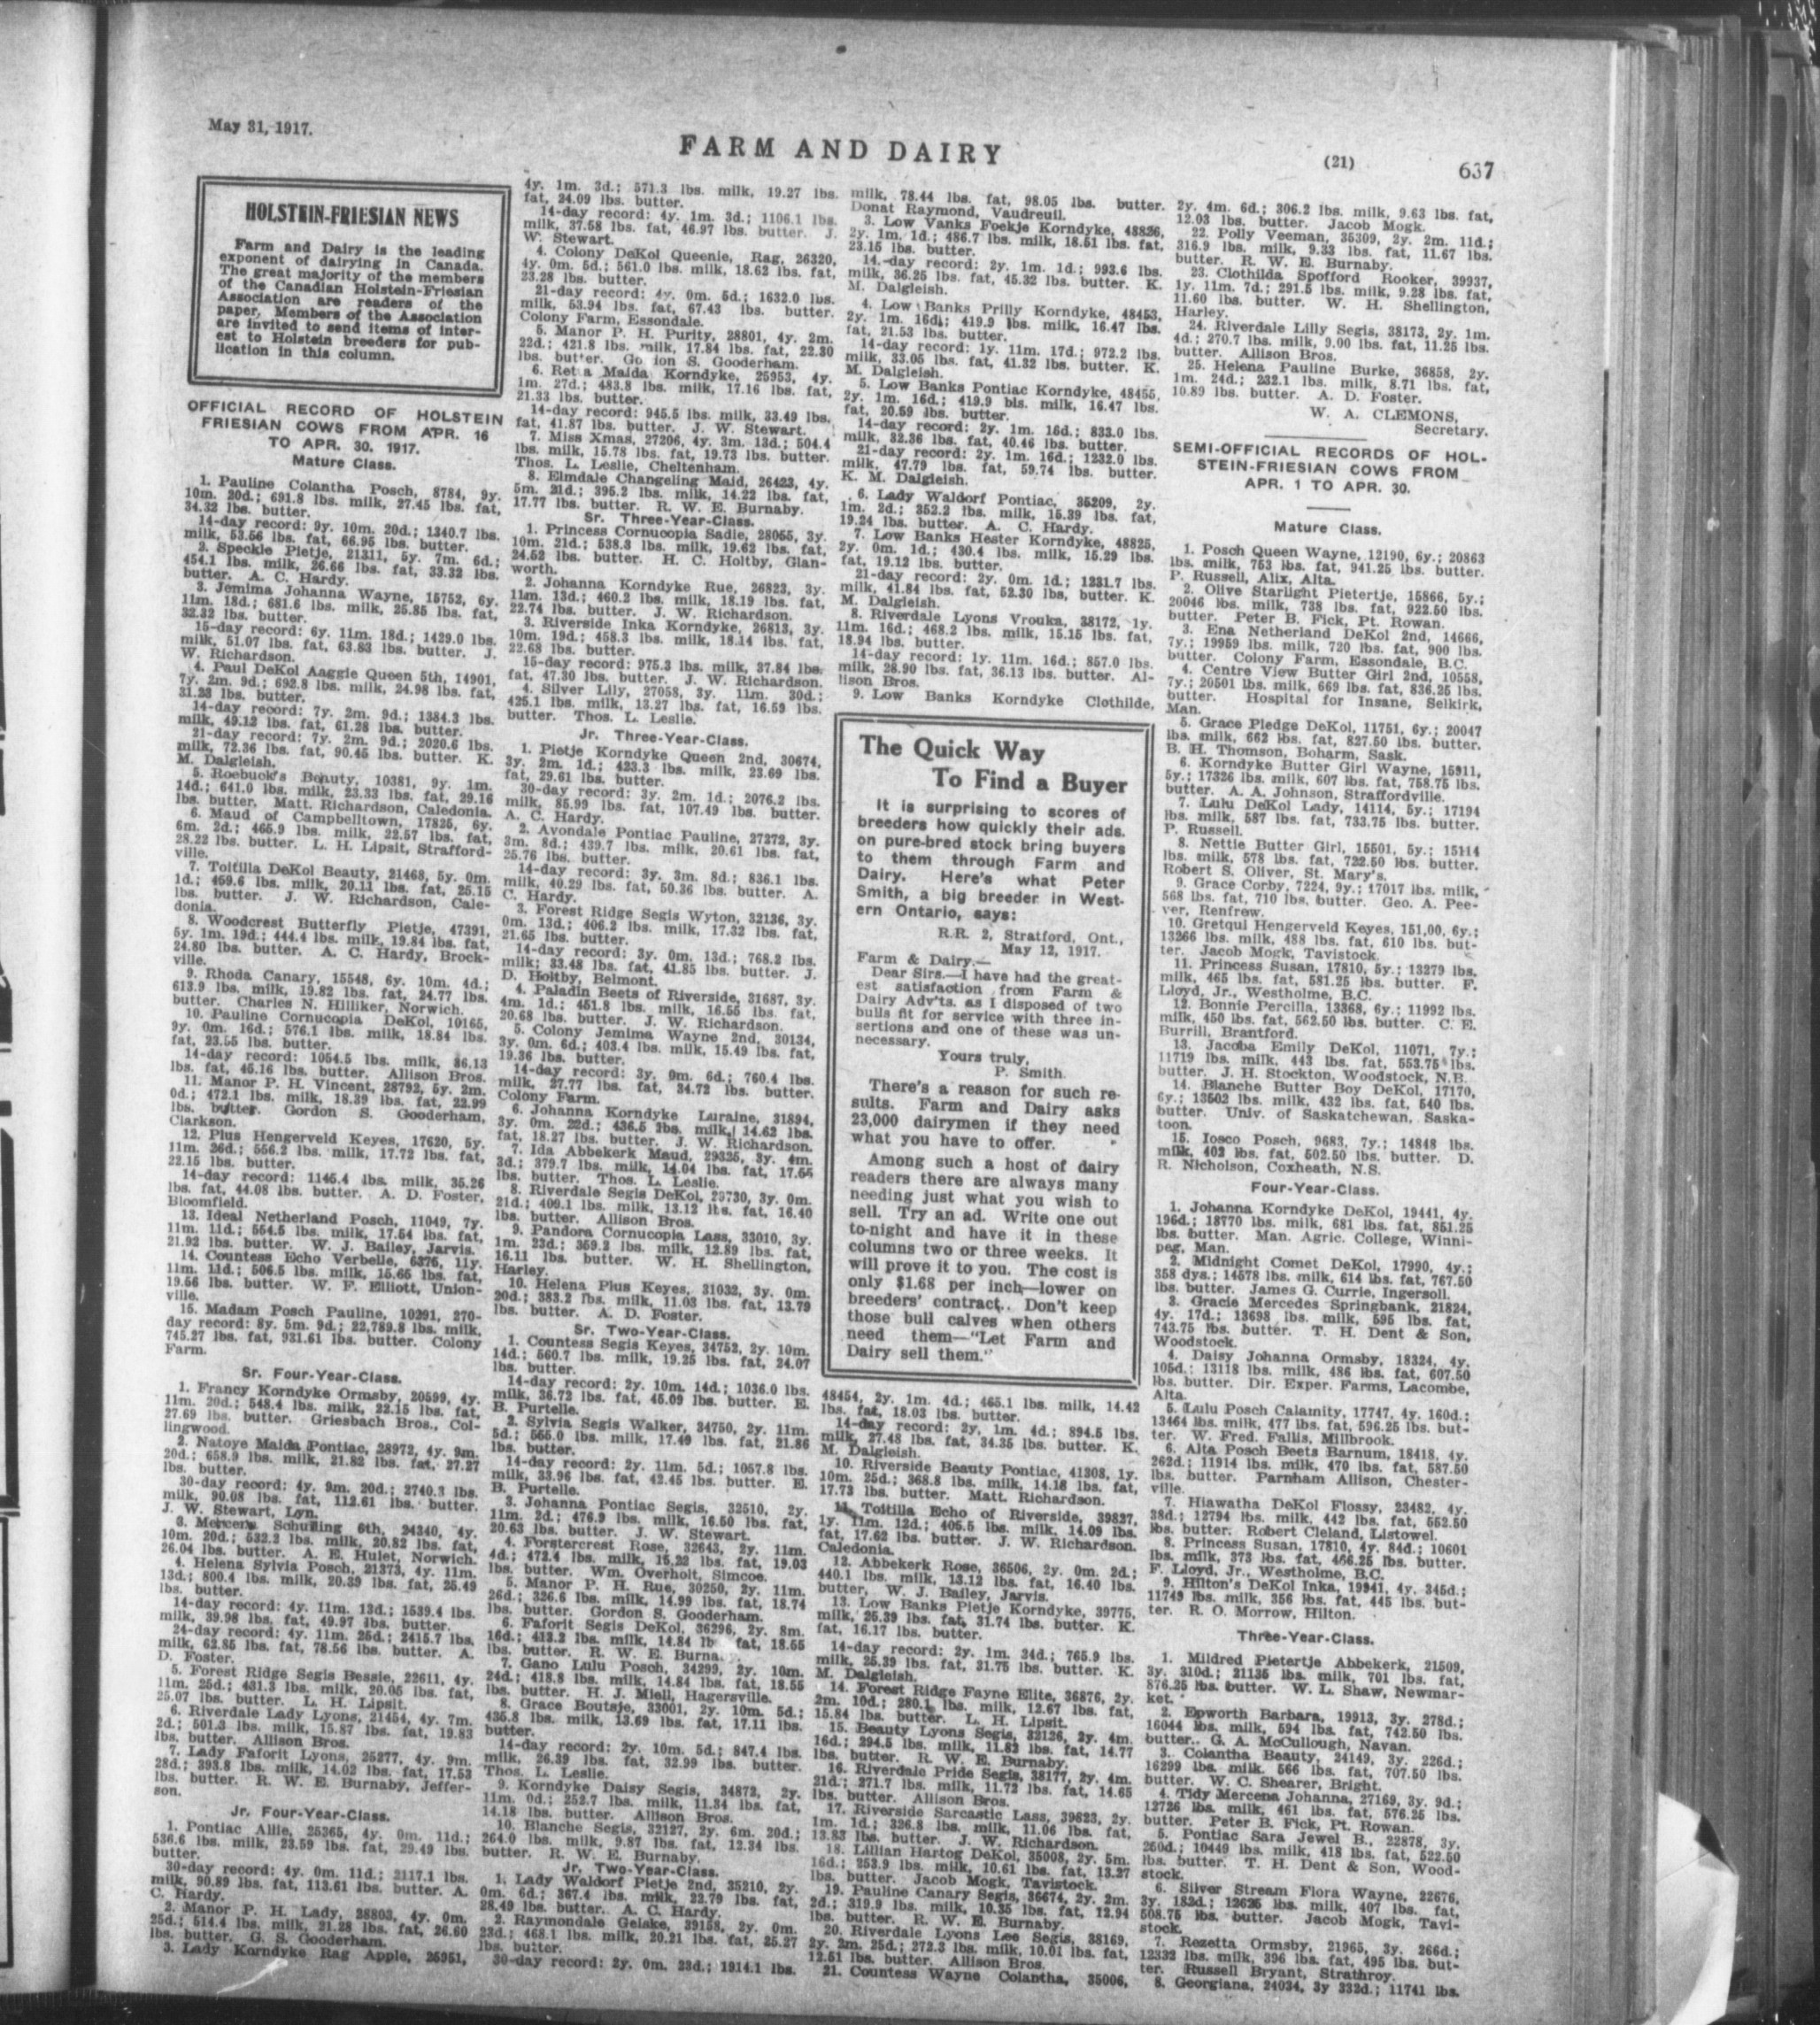 May 31, 1917.
FARM AND DAIRY
(21)
637
HOLSTEIN-FRIESIAN NEWS
Farm and Dairy is the leading
exponent of dairying in Canada.
The great majority of the members
of the Canadian Holstein-Friesian
Association are readers of the
paper, Members of the Association
are invited to send items of inter-
est to Holstein breeders for pub-
lication in this column.
OFFICIAL RECORD OF HOLSTEIN
FRIESIAN COWS FROM APR. 16
TO APR. 30. 1917.
Mature Class.
1. Pauline Colantha Posch, 8784, 9y.
10m. 20d.; 691.8 lbs. milk, 27.45 lbs. fat,
34.32 lbs. butter.
14-day record: 9y. 10m. 20d.; 1340.7 lbs.
milk, 53.56 lbs. fat, 66.95 lbs. butter.
2. Speckle Pietje, 21311, 5y. 7m. 6d.;
454.1 lbs. milk, 26.66 lbs. fat, 33.32 lbs.
butter. A. C. Hardy.
3. Jemima Johanna Wayne, 15752, 6y.
11m. 18d.; 681.6 lbs. milk, 25.85 lbs. fat,
32.32 lbs. butter.
15-day record: 6y. 11m. 18d.; 1429.0 lbs.
milk, 51.07 lbs. fat, 63.83 lbs. butter. J.
W. Richardson.
4. Paul DeKol Aaggie Queen 5th, 14901,
7y. 2m. 9d.; 692.8 lbs. milk, 24.98 lbs. fat,
31.23 lbs. butter.
14-day record: 7y. 2m. 9d.; 1384.3 lbs.
milk, 49.12 lbs. fat, 61.28 lbs. butter.
21-day record: 7y. 2m. 9d.; 2020.6 lbs.
milk, 72.36 lbs. fat, 90.45 lbs. butter. K.
M. Dalgleish.
5. Roebuck's Beauty, 10381, 9y. 1m.
14d.; 641.0 lbs. milk, 23.33 lbs. fat, 29.16
lbs. butter. Matt. Richardson, Caledonia.
6. Maud of Campbelltown, 17825, 6y.
6m. 2d.; 465.9 lbs. milk, 22.57 lbs. fat,
28.22 lbs. butter. L. H. Lipsit, Strafford-
ville.
7. Toitilla DeKol Beauty, 21468, 5y. 0m.
1d.; 459.6 lbs. milk, 20.11 lbs. fat, 25.15
lbs. butter. J. W. Richardson, Cale-
donia.
8. Woodcrest Butterfly Pietje, 47391,
5y. 1m. 19d.; 444.4 lbs. milk, 19.84 lbs. fat,
24.80 lbs. butter. A. C. Hardy, Brock-
ville.
9. Rhoda Canary, 15548, 6y. 10m. 4d.;
613.9 lbs. milk, 19.82 lbs. fat, 24.77 lbs.
butter. Charles N. Hilliker, Norwich.
10. Pauline Cornucopia DeKol, 10165,
9y. 0m. 16d.; 576.1 lbs. milk, 18.84 lbs.
fat, 23.55 lbs. butter.
14-day record: 1054.5 lbs. milk, 36.13
lbs. fat, 45.16 lbs. butter. Allison Bros.
11. Manor P. H. Vincent, 28792, 5y. 2m.
0d.; 472.1 lbs. milk, 18.39 lbs. fat, 22.99
lbs. butter. Gordon S. Gooderham,
Clarkson.
12. Plus Hengerveld Keyes, 17620, 5y.
11m. 26d.; 556.2 lbs. milk, 17.72 lbs. fat,
22.15 lbs. butter.
14-day record: 1145.4 lbs. milk, 35.26
lbs. fat, 44.08 lbs. butter. A. D. Foster,
Bloomfield.
13. Ideal Netherland Posch, 11049, 7y.
11m. 11d.; 554.5 lbs. milk, 17.54 lbs. fat,
21.92 lbs. butter. W. J. Bailey, Jarvis.
14. Countess Echo Verbelle, 6376, 11y.
11m. 11d.; 506.5 lbs. milk, 15.65 lbs. fat,
19.56 lbs. butter. W. F. Elliott, Union-
ville.
15. Madam Posch Pauline, 10291, 270-
day record: 8y. 5m. 9d.; 22,789.8 lbs. milk,
745.27 lbs. fat, 931.61 lbs. butter. Colony
Farm.
Sr. Four-Year-Class.
1. Francy Korndyke Ormsby, 20599, 4y.
11m. 20d.; 548.4 lbs. milk, 22.15 lbs. fat,
27.69 lbs. butter. Griesbach Bros., Col-
lingwood.
2. Natoye Maida Pontiac, 28972, 4y. 9m.
20d.; 658.9 lbs. milk, 21.82 lbs. fat, 27.27
lbs. butter.
30-day record: 4y. 9m. 20d.; 2740.3 lbs.
milk, 90.08 lbs. fat, 112.61 lbs. butter.
J. W. Stewart, Lyn.
3. Mercena Schuiling 6th, 24340, 4y.
10m. 20d.; 532.2 lbs. milk, 20.82 lbs. fat,
26.04 lbs. butter. A. E. Hulet, Norwich.
4. Helena Sylvia Posch, 21373, 4y. 11m.
13d.; 800.4 lbs. milk, 20.39 lbs. fat, 25.49
lbs. butter.
14-day record: 4y. 11m. 13d.; 1539.4 lbs.
milk, 39.98 lbs. fat, 49.97 lbs. butter.
24-day record: 4y. 11m. 25d.; 2415.7 lbs.
milk, 62.85 lbs. fat, 78.56 lbs. butter. A.
D. Foster.
5. Forest Ridge Segis Bessie, 22611, 4y.
11m. 25d.; 431.3 lbs. milk, 20.05 lbs. fat,
25.07 lbs. butter. L. H. Lipsit.
6. Riverdale Lady Lyons, 21454, 4y. 7m.
2d.; 501.3 lbs. milk, 15.87 lbs. fat, 19.83
lbs. butter. Allison Bros.
7. Lady Faforit Lyons, 25277, 4y. 9m.
28d.; 393.8 lbs. milk, 14.02 lbs. fat, 17.53
lbs. butter. R. W. E. Burnaby, Jeffer-
son.
Jr. Four-Year-Class.
1. Pontiac Allie, 25365, 4y. 0m. 11d.;
536.6 lbs. milk, 23.59 lbs. fat, 29.49 lbs.
butter.
30-day record: 4y. 0m. 11d.; 2117.1 lbs.
milk, 90.89 lbs. fat, 113.61 lbs. butter. A.
C. Hardy.
2. Manor P. H. Lady, 28803, 4y. 0m.
25d.; 514.4 lbs. milk, 21.28 lbs. fat, 26.60
lbs. butter. G. S. Gooderham.
3. Lady Korndyke Rag Apple, 25951,
4y. 1m. 3d.; 571.3 lbs. milk, 19.27 lbs.
fat, 24.09 lbs. butter.
14-day record: 4y. 1m. 3d.; 1106.1 lbs.
milk, 37.58 lbs. fat, 46.97 lbs. butter. J.
W. Stewart.
4. Colony DeKol Queenie, Rag, 26320,
4y. 0m. 5d.; 561.0 lbs. milk, 18.62 lbs. fat,
23.28 lbs. butter.
21-day record: 4y. 0m. 5d.; 1632.0 lbs.
milk, 53.94 lbs. fat, 67.43 lbs. butter.
Colony Farm, Essondale.
5. Manor P. H. Purity, 28801, 4y. 2m.
22d.; 421.8 lbs. milk, 17.84 lbs. fat, 22.30
lbs. butter. Go ion S. Gooderham.
6. Ret a Maida Korndyke, 25953, 4y.
1m. 27d.; 483.8 lbs. milk, 17.16 lbs. fat,
21.33 lbs. butter.
14-day record: 945.5 lbs. milk, 33.49 lbs.
fat, 41.87 lbs. butter. J. W. Stewart.
7. Miss Xmas, 27206, 4y. 3m. 13d.; 504.4
lbs. milk, 15.78 lbs. fat, 19.73 lbs. butter.
Thos. L. Leslie, Cheltenham.
8. Elmdale Changeling Maid, 26423, 4y.
5m. 21d.; 395.2 lbs. milk, 14.22 lbs. fat,
17.77 lbs. butter. R. W. E. Burnaby.
Sr. Three-Year-Class.
1. Princess Cornucopia Sadie, 28055, 3y.
10m. 21d.; 538.3 lbs. milk, 19.62 lbs. fat,
24.52 lbs. butter. H. C. Holtby, Glan-
worth.
2. Johanna Korndyke Rue, 26823, 3y.
11m. 13d.; 460.2 lbs. milk, 18.19 lbs. fat,
22.74 lbs. butter. J. W. Richardson.
3. Riverside Inka Korndyke, 26813, 3y.
10m. 19d.; 458.3 lbs. milk, 18.14 lbs. fat,
22.68 lbs. butter.
15-day record: 975.3 lbs. milk, 37.84 lbs.
fat, 47.30 lbs. butter. J. W. Richardson.
4. Silver Lily, 27058, 3y. 11m. 30d.;
425.1 lbs. milk, 13.27 lbs. fat, 16.59 lbs.
butter. Thos. L. Leslie.
Jr. Three-Year-Class.
1. Pietje Korndyke Queen 2nd, 30674,
3y. 2m. 1d.; 423.3 lbs. milk, 23.69 lbs.
fat, 29.61 lbs. butter.
30-day record: 3y. 2m. 1d.; 2076.2 lbs.
milk, 85.99 lbs. fat, 107.49 lbs. butter.
A. C. Hardy.
2. Avondale Pontiac Pauline, 27272, 3y.
3m. 8d.; 439.7 lbs. milk, 20.61 lbs. fat,
25.76 lbs. butter.
14-day record: 3y. 3m. 8d.; 836.1 lbs.
milk, 40.29 lbs. fat, 50.36 lbs. butter. A.
C. Hardy.
3. Forest Ridge Segis Wyton, 32136, 3y.
0m. 13d.; 406.2 lbs. milk, 17.32 lbs. fat,
21.65 lbs. butter.
14-day record: 3y. 0m. 13d.; 768.2 lbs.
milk; 33.48 lbs. fat, 41.85 lbs. butter. J.
D. Holtby, Belmont.
4. Paladin Beets of Riverside, 31687, 3y.
4m. 1d.; 451.8 lbs. milk, 16.55 lbs. fat,
20.68 lbs. butter. J. W. Richardson.
5. Colony Jemima Wayne 2nd, 30134,
3y. 0m. 6d.; 403.4 lbs. milk, 15.49 lbs. fat,
19.36 lbs. butter.
14-day record: 3y. 0m. 6d.; 760.4 lbs.
milk, 27.77 lbs. fat, 34.72 lbs. butter.
Colony Farm.
6. Johanna Korndyke Luraine, 31894,
3y. 0m. 22d.; 436.5 lbs. milk, 14.62 lbs.
fat, 18.27 lbs. butter. J. W. Richardson.
7. Ida Abbekerk Maud, 29325, 3y. 4m.
3d.; 379.7 lbs. milk, 14.04 lbs. fat, 17.55
lbs. butter. Thos. L. Leslie.
8. Riverdale Segis DeKol, 29730, 3y. 0m.
21d.; 409.1 lbs. milk, 13.12 lbs. fat, 16.40
lbs. butter. Allison Bros.
9. Pandora Cornucopia Lass, 33010, 3y.
1m. 23d.; 359.2 lbs. milk, 12.89 lbs. fat,
16.11 lbs. butter. W. H. Shellington,
Harley.
10. Helena Plus Keyes, 31032, 3y. 0m.
20d.; 383.2 lbs. milk, 11.03 lbs. fat, 13.79
lbs. butter. A. D. Foster.
Sr. Two-Year-Class.
1. Countess Segis Keyes, 34752, 2y. 10m.
14d.; 560.7 lbs. milk, 19.25 lbs. fat, 24.07
lbs. butter.
14-day record: 2y. 10m. 14d.; 1036.0 lbs.
milk, 36.72 lbs. fat, 45.09 lbs. butter. E.
B. Purtelle.
2. Sylvia Segis Walker, 34750, 2y. 11m.
5d.; 555.0 lbs. milk, 17.49 lbs. fat, 21.86
lbs. butter.
14-day record: 2y. 11m. 5d.; 1057.8 lbs.
milk, 33.96 lbs. fat, 42.45 lbs. butter. E.
B. Purtelle.
3. Johanna Pontiac Segis, 32510, 2y.
11m. 2d.; 476.9 lbs. milk, 16.50 lbs. fat,
20.63 lbs. butter. J. W. Stewart.
4. Forstercrest Rose, 32643, 2y. 11m.
4d.; 472.4 lbs. milk, 15.22 lbs. fat, 19.03
lbs. butter. Wm. Overholt, Simcoe.
5. Manor P. H. Rue, 30250, 2y. 11m.
26d.; 326.6 lbs. milk, 14.99 lbs. fat, 18.74
lbs. butter. Gordon S. Gooderham.
6. Faforit Segis DeKol, 36296, 2y. 8m.
16d.; 413.2 lbs. milk, 14.84 lb fat, 18.55
lbs. butter. R. W. E. Burna
7. Gano Lulu Posch, 34299, 2y. 10m.
24d.; 418.8 lbs. milk, 14.84 lbs. fat, 18.55
lbs. butter. H. J. Miell, Hagersville.
8. Grace Boutsje, 33001, 2y. 10m. 5d.;
435.8 lbs. milk, 13.69 lbs. fat, 17.11 lbs.
butter.
14-day record: 2y. 10m. 5d.; 847.4 lbs.
milk, 26.39 lbs. fat, 32.99 lbs. butter.
Thos. L. Leslie.
9. Korndyke Daisy Segis, 34872, 2y.
11m. 0d.; 252.7 lbs. milk, 11.34 lbs. fat,
14.18 lbs. butter. Allison Bros.
10. Blanche Segis, 32127, 2y. 6m. 20d.;
264.0 lbs. milk, 9.87 lbs. fat, 12.34 lbs.
butter. R. W. E. Burnaby.
Jr. Two-Year-Class.
1. Lady Waldorf Pietje 2nd, 35210, 2y.
0m. 6d.; 367.4 lbs. milk, 22.79 lbs. fat,
28.49 lbs. butter.. A. C. Hardy.
2. Raymondale Gelske, 39158, 2y. 0m.
23d.; 468.1 lbs. milk, 20.21 lbs. fat, 25.27
lbs. butter.
30-day record: 2y. 0m. 23d.; 1914.1 lbs.
milk, 78.44 lbs. fat, 98.05 lbs. butter.
Donat Raymond, Vaudreuil.
3. Low Vanks Foekje Korndyke, 48826,
2y. 1m. 1d.; 486.7 lbs. milk, 18.51 lbs. fat,
23.15 lbs. butter.
14.-day record: 2y. 1m. 1d.; 993.6 lbs.
milk, 36.25 lbs. fat, 45.32 lbs. butter. K.
M. Dalgleish.
4. Low Banks Prilly Korndyke, 48453,
2y. 1m. 16d.; 419.9 lbs. milk, 16.47 lbs.
fat, 21.53 lbs. butter.
14-day record: 1y. 11m. 17d.; 972.2 lbs.
milk, 33.05 lbs. fat, 41.32 lbs. butter. K.
M. Dalgleish.
5. Low Banks Pontiac Korndyke, 48455,
2y. 1m. 16d.; 419.9 bls. milk, 16.47 lbs.
fat, 20.59 lbs. butter.
14-day record: 2y. 1m. 16d.; 833.0 lbs.
milk, 32.36 lbs. fat, 40.46 lbs. butter.
21-day record: 2y. 1m. 16d.; 1232.0 lbs.
milk, 47.79 lbs. fat, 59.74 lbs. butter.
K. M. Dalgleish.
6. Lady Waldorf Pontiac, 35209, 2y.
1m. 2d.; 352.2 lbs. milk, 15.39 lbs. fat,
19.24 lbs. butter. A. C. Hardy.
7. Low Banks Hester Korndyke, 48825,
2y. 0m. 1d.; 430.4 lbs. milk, 15.29 lbs.
fat, 19.12 lbs. butter.
21-day record: 2y. 0m. 1d.; 1231.7 lbs.
milk, 41.84 lbs. fat, 52.30 lbs, butter. K.
M. Dalgleish.
8. Riverdale Lyons Vrouka, 38172, 1y.
11m. 16d.; 468.2 lbs. milk, 15.15 lbs. fat,
18.94 lbs. butter.
14-day record: 1y. 11m. 16d.; 857.0 lbs.
milk, 28.90 lbs. fat, 36.13 lbs. butter. Al-
lison Bros.
9. Low Banks Korndyke Clothilde,
The Quick Way
To Find a Buyer
It is surprising to scores of
breeders how quickly their ads.
on pure-bred stock bring buyers
to them through Farm and
Dairy. Here's what Peter
Smith, a big breeder in West-
ern Ontario, says:
R.R. 2, Stratford, Ont.,
May 12, 1917.
Farm & Dairy.—
Dear Sirs.—I have had the great-
est satisfaction from Farm &
Dairy Adv'ts. as I disposed of two
bulls fit for service with three in-
sertions and one of these was un-
necessary.
Yours truly,
P. Smith.
There's a reason for such re-
sults. Farm and Dairy asks
23,000 dairymen if they need
what you have to offer.
Among such a host of dairy
readers there are always many
needing just what you wish to
sell. Try an ad. Write one out
to-night and have it in these
columns two or three weeks. It
will prove it to you. The cost is
only $1.68 per inch—lower on
breeders' contract.. Don't keep
those bull calves when others
need them—"Let Farm and
Dairy sell them."
48454, 2y. 1m. 4d.; 465.1 lbs. milk, 14.42
lbs. fat, 18.03 lbs. butter.
14-day record: 2y, 1m. 4d.; 894.5 lbs.
milk, 27.48 lbs. fat, 34.35 lbs. butter. K.
M. Dalgleish.
10. Riverside Beauty Pontiac, 41308, 1y.
10m. 25d.; 368.8 lbs. milk, 14.18 lbs. fat,
17.73 lbs. butter. Matt. Richardson.
11. Toitilla Echo of Riverside, 39827,
1y. 11m. 12d.; 405.5 lbs. milk, 14.09 lbs.
fat, 17.62 lbs. butter. J. W. Richardson.
Caledonia.
12. Abbekerk Rose, 36506, 2y. 0m. 2d.;
440.1 lbs. milk, 13.12 lbs. fat, 16.40 lbs.
butter, W. J. Bailey, Jarvis.
13. Low Banks Pietje Korndyke, 39775,
milk, 25.39 lbs. fat, 31.74 lbs. butter. K.
fat, 16.17 lbs. butter.
14-day record: 2y. 1m. 34d.; 765.9 lbs.
milk, 25.39 lbs. fat, 31.75 lbs. butter. K.
M. Dalgleish.
14. Forest Ridge Fayne Elite, 36876, 2y.
2m. 10d.; 280.1 lbs. milk, 12.67 lbs. fat,
15.84 lbs. butter. L. H. Lipsit.
15. Beauty Lyons Segis, 32126, 3y. 4m.
16d.; 294.5 lbs. milk, 11.82 lbs. fat, 14.77
lbs. butter. R. W. E. Burnaby.
16. Riverdale Pride Segis, 38177, 2y. 4m.
21d.; 271.7 lbs. milk, 11.72 lbs. fat, 14.65
lbs. butter. Allison Bros.
17. Riverside Sarcastic Lass, 39823, 2y.
1m. 1d.; 326.8 lbs. milk, 11.06 lbs. fat,
13.83 lbs. butter. J. W. Richardson.
18. Lillian Hartog DeKol, 35008, 2y. 5m.
16d.; 253.9 lbs. milk, 10.61 lbs. fat, 13.27
lbs. butter. Jacob Mogk, Tavistock.
19. Pauline Canary Segis, 36674, 2y. 2m.
2d.; 319.9 lbs. milk, 10.35 lbs. fat, 12.94
lbs. butter. R. W. E. Burnaby.
20. Riverdale Lyons Lee Segis, 38169,
2y. 2m. 25d.; 272.3 lbs. milk, 10.01 lbs. fat,
12.51 lbs. butter. Allison Bros.
21. Countess Wayne Colantha, 35006,
2y. 4m. 6d.; 306.2 lbs. milk, 9.63 lbs. fat,
12.03 lbs. butter. Jacob Mogk.
22. Polly Veeman, 35309, 2y. 2m. 11d.;
316.9 lbs. milk, 9.33 lbs. fat, 11.67 lbs.
butter. R. W. E. Burnaby.
23. Clothilda Spofford Rooker, 39937,
1y. 11m. 7d.; 291.5 lbs. milk, 9.28 lbs. fat,
11.60 lbs. butter. W. H. Shellington,
Harley.
24. Riverdale Lilly Segis, 38173, 2y. 1m.
4d.; 270.7 lbs. milk, 9.00 lbs. fat, 11.25 lbs.
butter. Allison Bros.
25. Helena Pauline Burke, 36858, 2y.
1m. 24d.; 232.1 lbs. milk, 8.71 lbs. fat,
10.89 lbs. butter. A. D. Foster.
W. A. CLEMONS,
Secretary.
SEMI-OFFICIAL RECORDS OF HOL-
STEIN-FRIESIAN COWS FROM
APR. 1 TO APR. 30.
Mature Class.
1. Posch Queen Wayne, 12190, 6y.; 20863
lbs. milk, 753 lbs. fat, 941.25 lbs. butter.
P. Russell, Alix, Alta.
2. Olive Starlight Pietertje, 15866, 5y.;
20046 lbs. milk, 738 lbs. fat, 922.50 lbs.
butter. Peter B. Fick, Pt. Rowan.
3. Ena Netherland DeKol 2nd, 14666,
7y.; 19959 lbs. milk, 720 lbs. fat, 900 lbs.
butter. Colony Farm, Essondale, B.C.
4. Centre View Butter Girl 2nd, 10558,
7y.; 20501 lbs. milk, 669 lbs. fat, 836.25 lbs.
butter. Hospital for Insane, Selkirk,
Man.
5. Grace Pledge DeKol, 11751, 6y.; 20047
lbs. milk, 662 lbs. fat, 827.50 lbs. butter.
B. H. Thomson, Boharm, Sask.
6. Korndyke Butter Girl Wayne, 15911,
5y.; 17326 lbs. milk, 607 lbs. fat, 758.75 lbs.
butter. A. A. Johnson, Straffordville.
7. Lulu DeKol Lady, 14114, 5y.; 17194
lbs. milk, 587 lbs. fat, 733.75 lbs. butter.
P. Russell.
8. Nettie Butter Girl, 15501, 5y.; 15114
lbs. milk, 578 lbs. fat, 722.50 lbs. butter.
Robert S. Oliver, St. Mary's.
9. Grace Corby, 7224, 9y.; 17017 lbs. milk,
568 lbs. fat, 710 lbs. butter. Geo. A. Pee-
ver, Renfrew.
10. Gretqui Hengerveld Keyes, 151,00, 6y.;
13266 lbs. milk, 488 lbs. fat, 610 lbs. but-
ter. Jacob Mogk, Tavistock.
11. Princess Susan, 17810, 5y.; 13279 lbs.
milk, 465 lbs. fat, 581.25 lbs. butter. F.
Lloyd, Jr., Westholme, B.C.
12. Bonnie Percilla, 13368, 6y.; 11992 lbs.
milk, 450 lbs. fat, 562.50 lbs. butter. C. E.
Burrill, Brantford.
13. Jacoba Emily DeKol, 11071, 7y.;
11719 lbs. milk, 443 lbs. fat, 553.75 lbs.
butter. J. H. Stockton, Woodstock, N.B.
14. Blanche Butter Boy DeKol, 17170,
6y.; 13502 lbs. milk, 432 lbs. fat, 540 lbs.
butter. Univ. of Saskatchewan, Saska-
toon.
15. Iosco Posch, 9683, 7y.; 14848 lbs.
milk, 402 lbs. fat, 502.50 lbs. butter. D.
R. Nicholson, Coxheath, N.S.
Four-Year-Class.
1. Johanna Korndyke DeKol, 19441, 4y.
196d.; 18770 lbs. milk, 681 lbs. fat, 851.25
lbs. butter. Man. Agric. College, Winni-
peg, Man.
2. Midnight Comet DeKol, 17990, 4y.;
358 dys.; 14578 lbs. milk, 614 lbs. fat, 767.50
lbs. butter. James G. Currie, Ingersoll.
3. Gracie Mercedes Springbank, 21824,
4y. 17d.; 13698 lbs. milk, 595 lbs. fat,
743.75 lbs. butter. T. H. Dent & Son,
Woodstock.
4. Daisy Johanna Ormsby, 18324, 4y.
105d.; 13118 lbs. milk, 486 lbs. fat, 607.50
lbs. butter. Dir. Exper. Farms, Lacombe,
Alta.
5. Lulu Posch Calamity, 17747, 4y. 160d.;
13464 lbs. milk, 477 lbs. fat, 596.25 lbs. but-
ter. W. Fred. Fallis, Millbrook.
6. Alta Posch Beets Barnum, 18418, 4y.
262d.; 11914 lbs. milk, 470 lbs. fat, 587.50
lbs. butter. Parnham Allison, Chester-
ville.
7. Hiawatha DeKol Flossy, 23482, 4y.
38d.; 12794 lbs. milk, 442 lbs. fat, 552.50
lbs. butter. Robert Cleland, Listowel.
8. Princess Susan, 17810, 4y. 84d.; 10601
lbs. milk, 373 lbs. fat, 466.25 lbs. butter.
F. Lloyd, Jr., Westholme, B.C.
9. Hilton's DeKol Inka, 19941, 4y. 345d.;
11749 lbs. milk, 356 lbs. fat, 445 lbs. but-
ter. R. O. Morrow, Hilton.
Three-Year-Class.
1. Mildred Pietertje Abbekerk, 21509,
3y. 310d.; 21135 lbs. milk, 701 lbs. fat,
876.25 lbs. butter. W. L. Shaw, Newmar-
ket.
2. Epworth Barbara, 19913, 3y. 278d.;
16044 lbs. milk, 594 lbs. fat, 742.50 lbs.
butter.. G. A. McCullough, Navan.
3. Colantha Beauty, 24149, 3y. 226d.;
16299 lbs. milk. 566 lbs. fat, 707.50 lbs.
butter. W. C. Shearer, Bright.
4. Tidy Mercena Johanna, 27169, 3y. 9d.;
12726 lbs. milk, 461 lbs. fat, 576.25 lbs.
butter. Peter B. Fick, Pt. Rowan.
5. Pontiac Sara Jewel B., 22878, 3y.
260d.; 10449 lbs. milk, 418 lbs. fat, 522.50
lbs. butter. T. H. Dent & Son, Wood-
stock.
6. Silver Stream Flora Wayne, 22676,
3y. 182d.; 12625 lbs. milk, 407 lbs. fat,
508.75 lbs. butter. Jacob Mogk, Tavi-
stock.
7. Rozetta Ormsby, 21965, 3y. 266d.;
12332 lbs. milk, 396 lbs. fat, 495 lbs. but-
ter. Russell Bryant, Strathroy.
8. Georgiana, 24034, 3y 332d.; 11741 lbs.